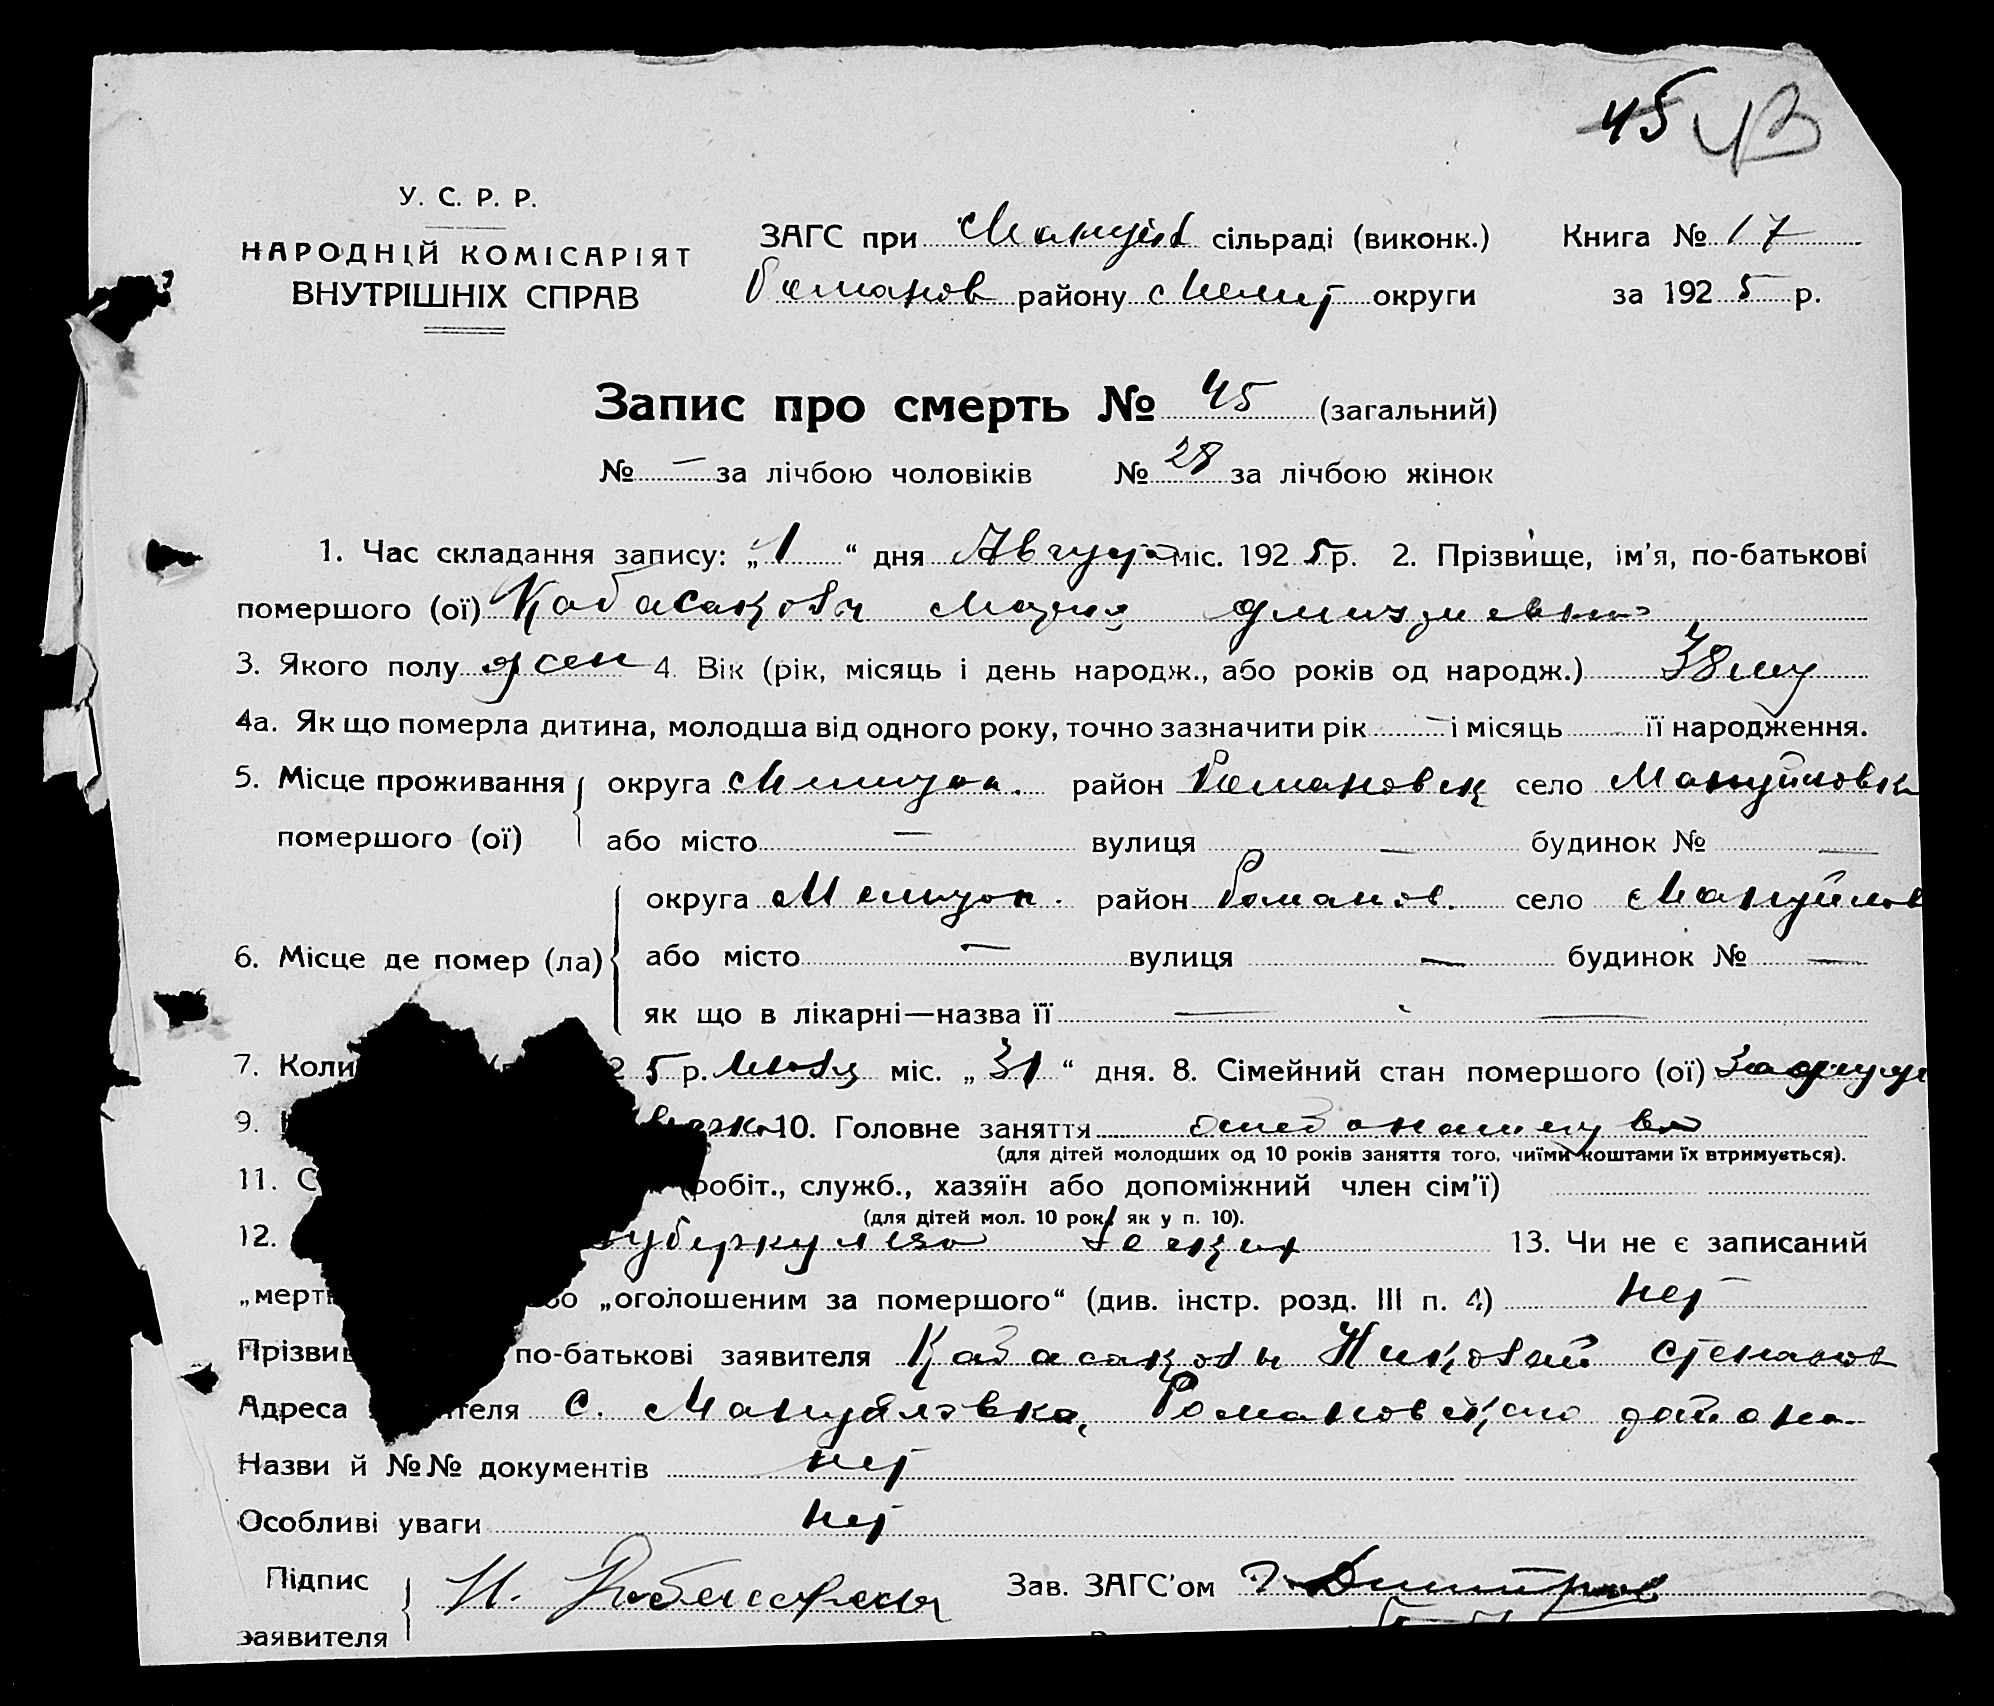 45 43
У. С. Р. Р.
НАРОДНІЙ КОМІСАРІЯТ
ВНУТРІШНІХ СПРАВ
ЗАГС при Мануйл сільраді (виконк.) Книга № 17
Романов району Мелит округи за 192 5 р.
Запис про смерть № 45 (загальний)
№ — за лічбою чоловіків № 28 за лічбою жінок
1. Час складання запису: „ 1 “ дня Августа міс. 192 5 р. 2. Прізвище, ім'я, по-батькові
помершого (ої) Мария
3. Якого полу жен 4. Вік (рік, місяць і день народж., або років од народж.) 38
4а. Як що померла дитина, молодша від одного року, точно зазначити рік — і місяць — її народження.
5. Місце проживання округа район Романовск село Мануйловка
помершого (ої) або місто — вулиця — будинок № —
округа район Романов. село Мануйлов
6. Місце де помер (ла) або місто — вулиця — будинок № —
як що в лікарні—назва її — —
7. Коли 2 5 р. Июля міс. „ 31 “ дня. 8. Сімейний стан помершого (ої)
9. 10. Головне заняття
(для дітей молодших од 10 років заняття того, чиїми коштами їх втримується).
11. С (робіт., служб., хазяїн або допоміжний член сім'ї)
(для дітей мол. 10 рок. як у п. 10).
12. туберкулеза легких 13. Чи не є записаний
„мертв бо „оголошеним за помершого“ (див. інстр. розд. III п. 4) нет
Прізвищ по-батькові заявителя Николай Степанов
Адреса теля с. Мануйловка, Романовского района
Назви й №№ документів нет
Особливі уваги нет
Підпис
заявителя
Зав. ЗАГС'ом